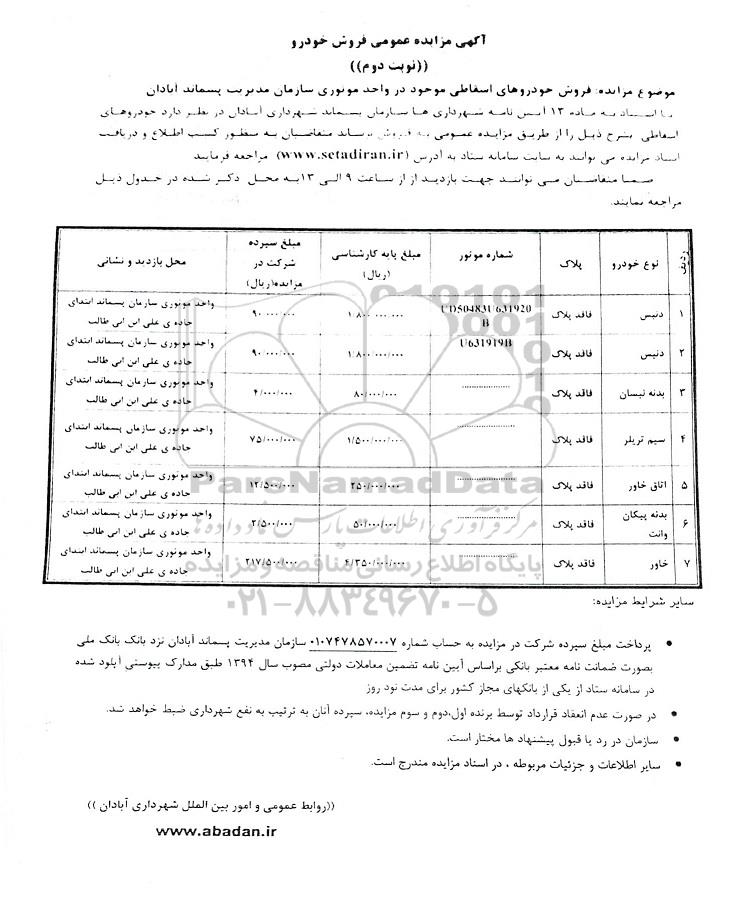 آگهی مزایده عمومی فروش خودرو
((نوبت دوم))
موضوع مزایده: فروش خودروهای اسقاطی موجود در واحد موتوری سازمان مدیریت پسماند آبادان
با استناد به ماده ۱۳ آیین نامه شهرداری ها سازمان پسماند شهرداری آبادان در نظر دارد خودروهای
اسقاطی بشرح ذیل را از طریق مزایده عمومی به فروش برساند متقاضیان به منظور کسب اطلاع و دریافت
اسناد مزایده می توانند به سایت سامانه ستاد به آدرس (www.setadiran.ir) مراجعه فرمایند
ضمنا متقاضیان می توانند جهت بازدید از از ساعت ۹ الی ۱۳به محل ذکر شده در جدول ذیل
مراجعه نمایند.
ردیف نوع خودرو پلاک شماره موتور مبلغ پایه کارشناسی (ریال) مبلغ سپرده شرکت در مزایده(ریال) محل بازدید و نشانی
۱ دنیس فاقد پلاک UD50483U631920B ۱/۸۰۰/۰۰۰/۰۰۰ ۹۰/۰۰۰/۰۰۰ واحد موتوری سازمان پسماند ابتدای جاده ی علی ابن ابی طالب
۲ دنیس فاقد پلاک U631919B ۱/۸۰۰/۰۰۰/۰۰۰ ۹۰/۰۰۰/۰۰۰ واحد موتوری سازمان پسماند ابتدای جاده ی علی ابن ابی طالب
۳ بدنه نیسان فاقد پلاک .................... ۸۰/۰۰۰/۰۰۰ ۴/۰۰۰/۰۰۰ واحد موتوری سازمان پسماند ابتدای جاده ی علی ابن ابی طالب
۴ سیم تریلر فاقد پلاک .................... ۱/۵۰۰/۰۰۰/۰۰۰ ۷۵/۰۰۰/۰۰۰ واحد موتوری سازمان پسماند ابتدای جاده ی علی ابن ابی طالب
۵ اتاق خاور فاقد پلاک .................... ۲۵۰/۰۰۰/۰۰۰ ۱۲/۵۰۰/۰۰۰ واحد موتوری سازمان پسماند ابتدای جاده ی علی ابن ابی طالب
۶ بدنه پیکان وانت فاقد پلاک .................... ۵۰/۰۰۰/۰۰۰ ۲/۵۰۰/۰۰۰ واحد موتوری سازمان پسماند ابتدای جاده ی علی ابن ابی طالب
۷ خاور فاقد پلاک .................... ۴/۳۵۰/۰۰۰/۰۰۰ ۲۱۷/۵۰۰/۰۰۰ واحد موتوری سازمان پسماند ابتدای جاده ی علی ابن ابی طالب
ParsNamadData
مرکز فرآوری اطلاعات پارس نماد داده ها
پایگاه اطلاع رسانی مناقصه و مزایده
۰۲۱-۸۸۳۴۹۶۷۰-۵
سایر شرایط مزایده:
• پرداخت مبلغ سپرده شرکت در مزایده به حساب شماره ۰۱۰۷۴۷۸۵۷۰۰۰۷ سازمان مدیریت پسماند آبادان نزد بانک بانک ملی
بصورت ضمانت نامه معتبر بانکی براساس آیین نامه تضمین معاملات دولتی مصوب سال ۱۳۹۴ طبق مدارک پیوستی آپلود شده
در سامانه ستاد از یکی از بانکهای مجاز کشور برای مدت نود روز
• در صورت عدم انعقاد قرارداد توسط برنده اول،دوم و سوم مزایده، سپرده آنان به ترتیب به نفع شهرداری ضبط خواهد شد.
• سازمان در رد یا قبول پیشنهاد ها مختار است.
• سایر اطلاعات و جزئیات مربوطه ، در اسناد مزایده مندرج است.
((روابط عمومی و امور بین الملل شهرداری آبادان ))
www.abadan.ir